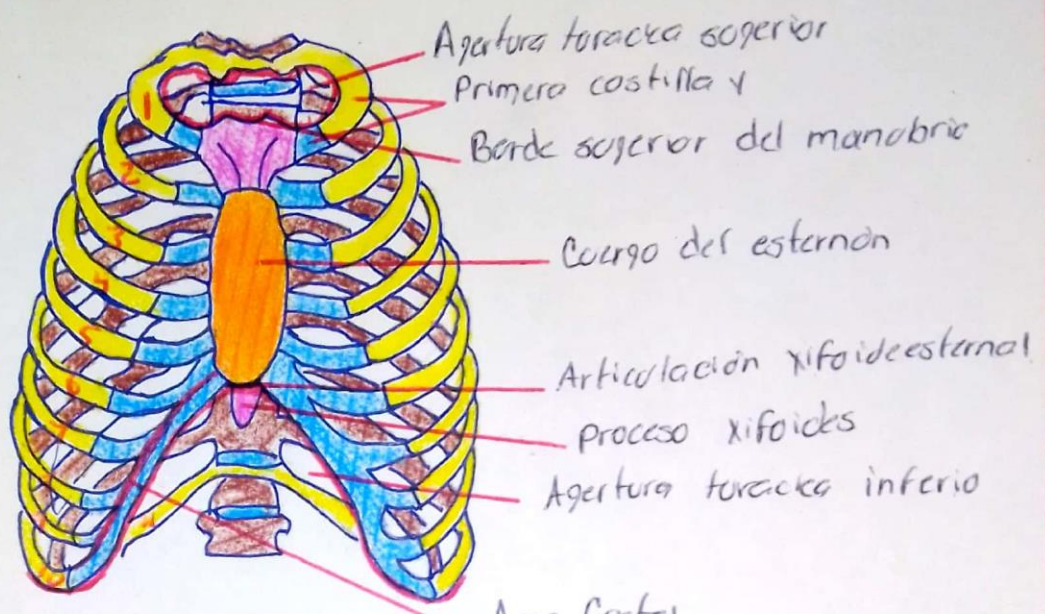 Apertura toracica soperior
Primera costilla y
Borde soperior del manobrio
Coerpo del esternón
Articolación xifoideesternal
Proceso xifoides
Apertura toracica inferio
Arco Costal
1
2
3
4
5
6